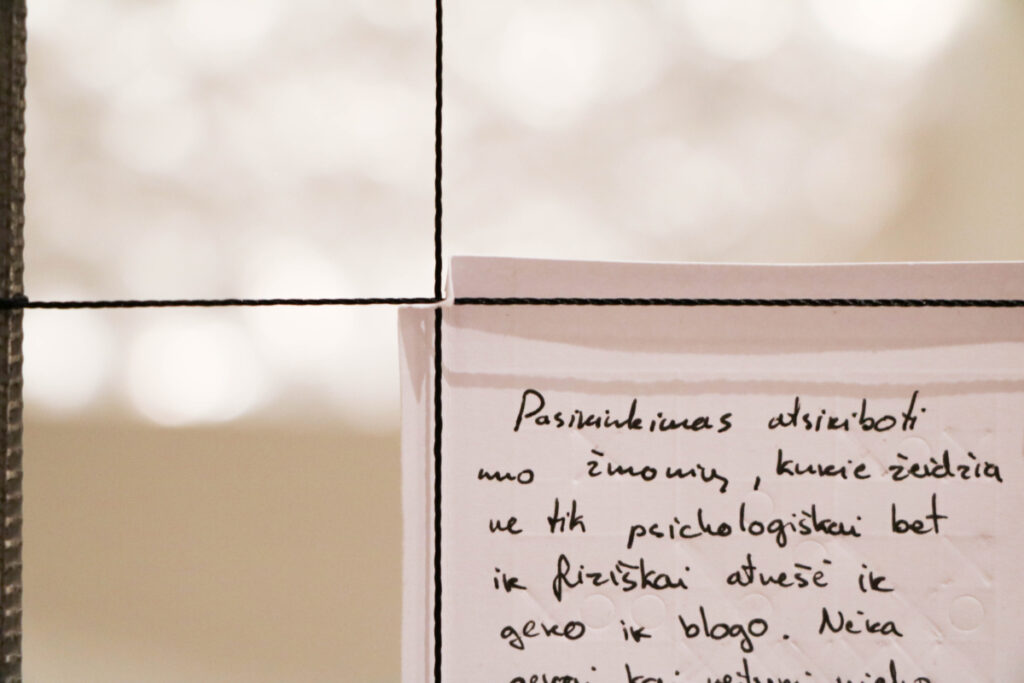 Pasirinkimas atsiriboti
nuo žmonių, kurie žeidžia
ne tik psichologiškai bet
ir fiziškai atnešė ir
gero ir blogo. Nėra
gerai kai neturi nieko